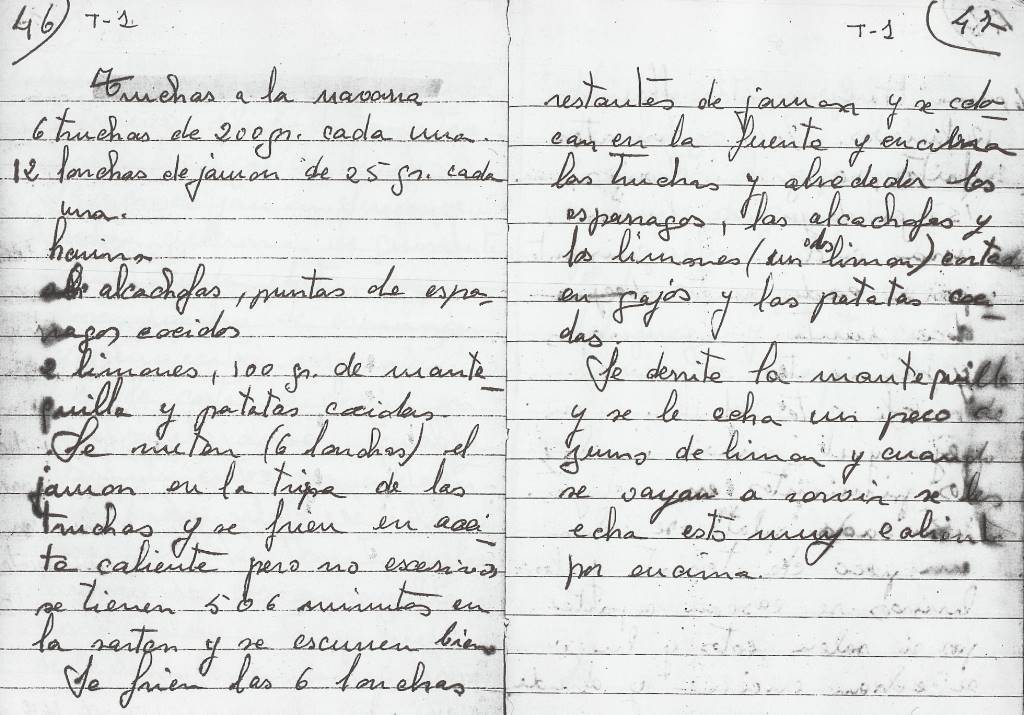 46) T-1
Truchas a la navarra
6 truchas de 200 gr. cada una.
12 lonchas de jamon de 25 gr. cada
una.
harina
alcachofas, puntas de espa-
rragos cocidos
2 limones, 100 gr. de mante-
quilla y patatas cocidas.
Se meten (6 lonchas) el
jamon en la tripa de las
truchas y se frien en acei-
te caliente pero no excesivos
se tienen 5 o 6 minutos en
la sarten y se escurren bien
Se frien las 6 lonchas
T-1 (47
restantes de jamon y se colo-
can en la fuente y encima
las truchas y alrededor los
esparragos, las alcachofas y
los limones (un limon) cortados
en gajos y las patatas coci-
das.
Se derrite la mantequilla
y se le echa un poco de
zumo de limon y cuando
se vayan a servir se les
echa esto muy caliente
por encima.